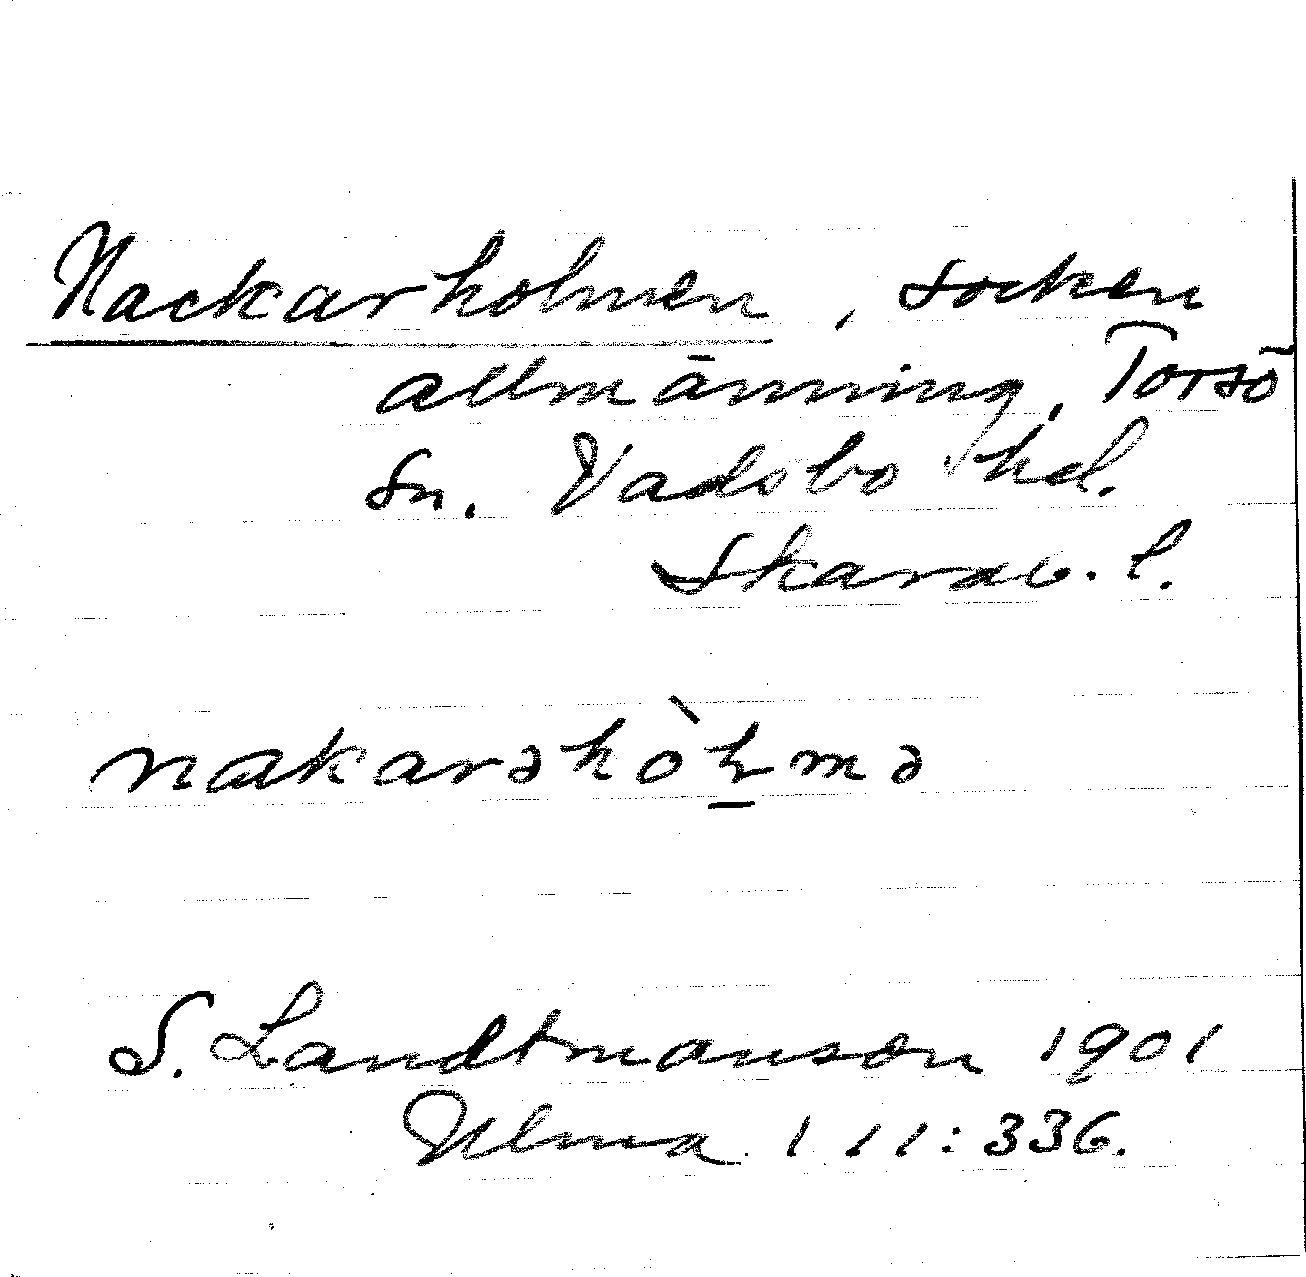 Nackarholmen, socken
allmänning, Torsö
sn. Vadsbo hd.
Skarab. l.
nakarəhòl̠mə
S. Landtmanson 1901
Ulma 111:336.